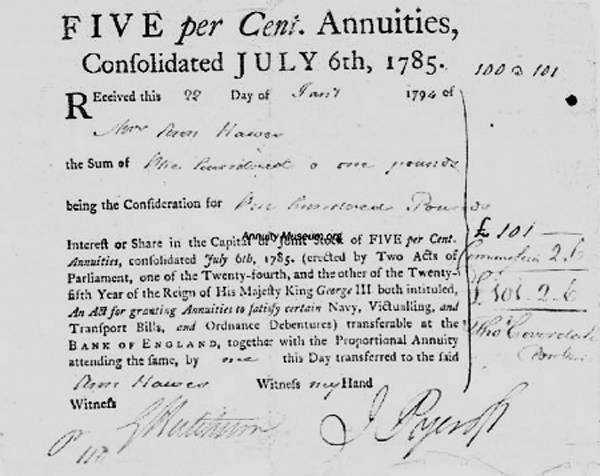 FIVE per Cent. Annuities,
Conſolidated JULY 6th, 1785.
100 @ 101
REceived this 22 Day of Jany 1794 of
Mrs Ann Hawes
the Sum of One hundred & one pounds
being the Conſideration for One hundred Pounds
AnnuityMuseum.org
£ 101
Intereſt or Share in the Capital or Joint Stock of FIVE per Cent.
Annuities, conſolidated July 6th, 1785. (erected by Two Acts of
Parliament, one of the Twenty-fourth, and the other of the Twenty-
fifth Year of the Reign of His Majeſty King George III. both intituled,
An Act for granting Annuities to ſatisfy certain Navy, Victualling, and
Tranſport Bills, and Ordnance Debentures) transferable at the
BANK OF ENGLAND, together with the Proportional Annuity
attending the ſame, by me this Day transferred to the ſaid
Ann Hawes Witneſs my Hand
Witneſs
2.6
£ 101.2.6